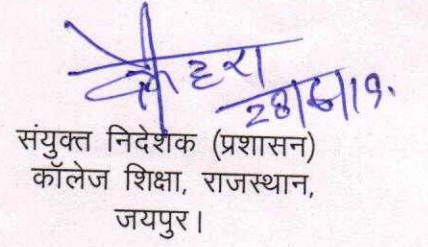 28/6/19.
संयुक्त निदेशक (प्रशासन)
कॉलेज शिक्षा, राजस्थान,
जयपुर।